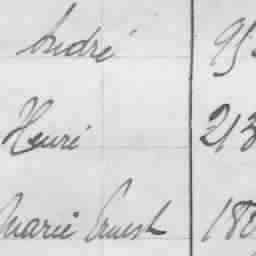 André 95
Henri 213
Marie Ernest 18